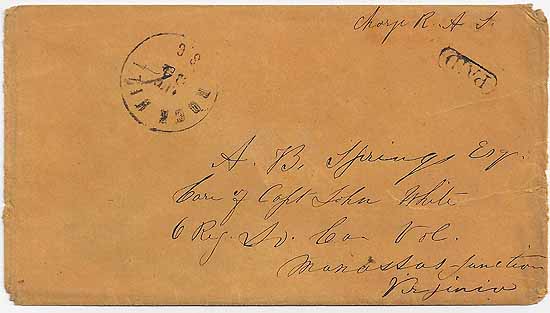 Charge R. A. S.
PAID
ROCK HILL S.C.
A. B. Springs Esq.
Care of Capt John White
6 Reg. So. Car Vol.
Manassas Junction
Virginia